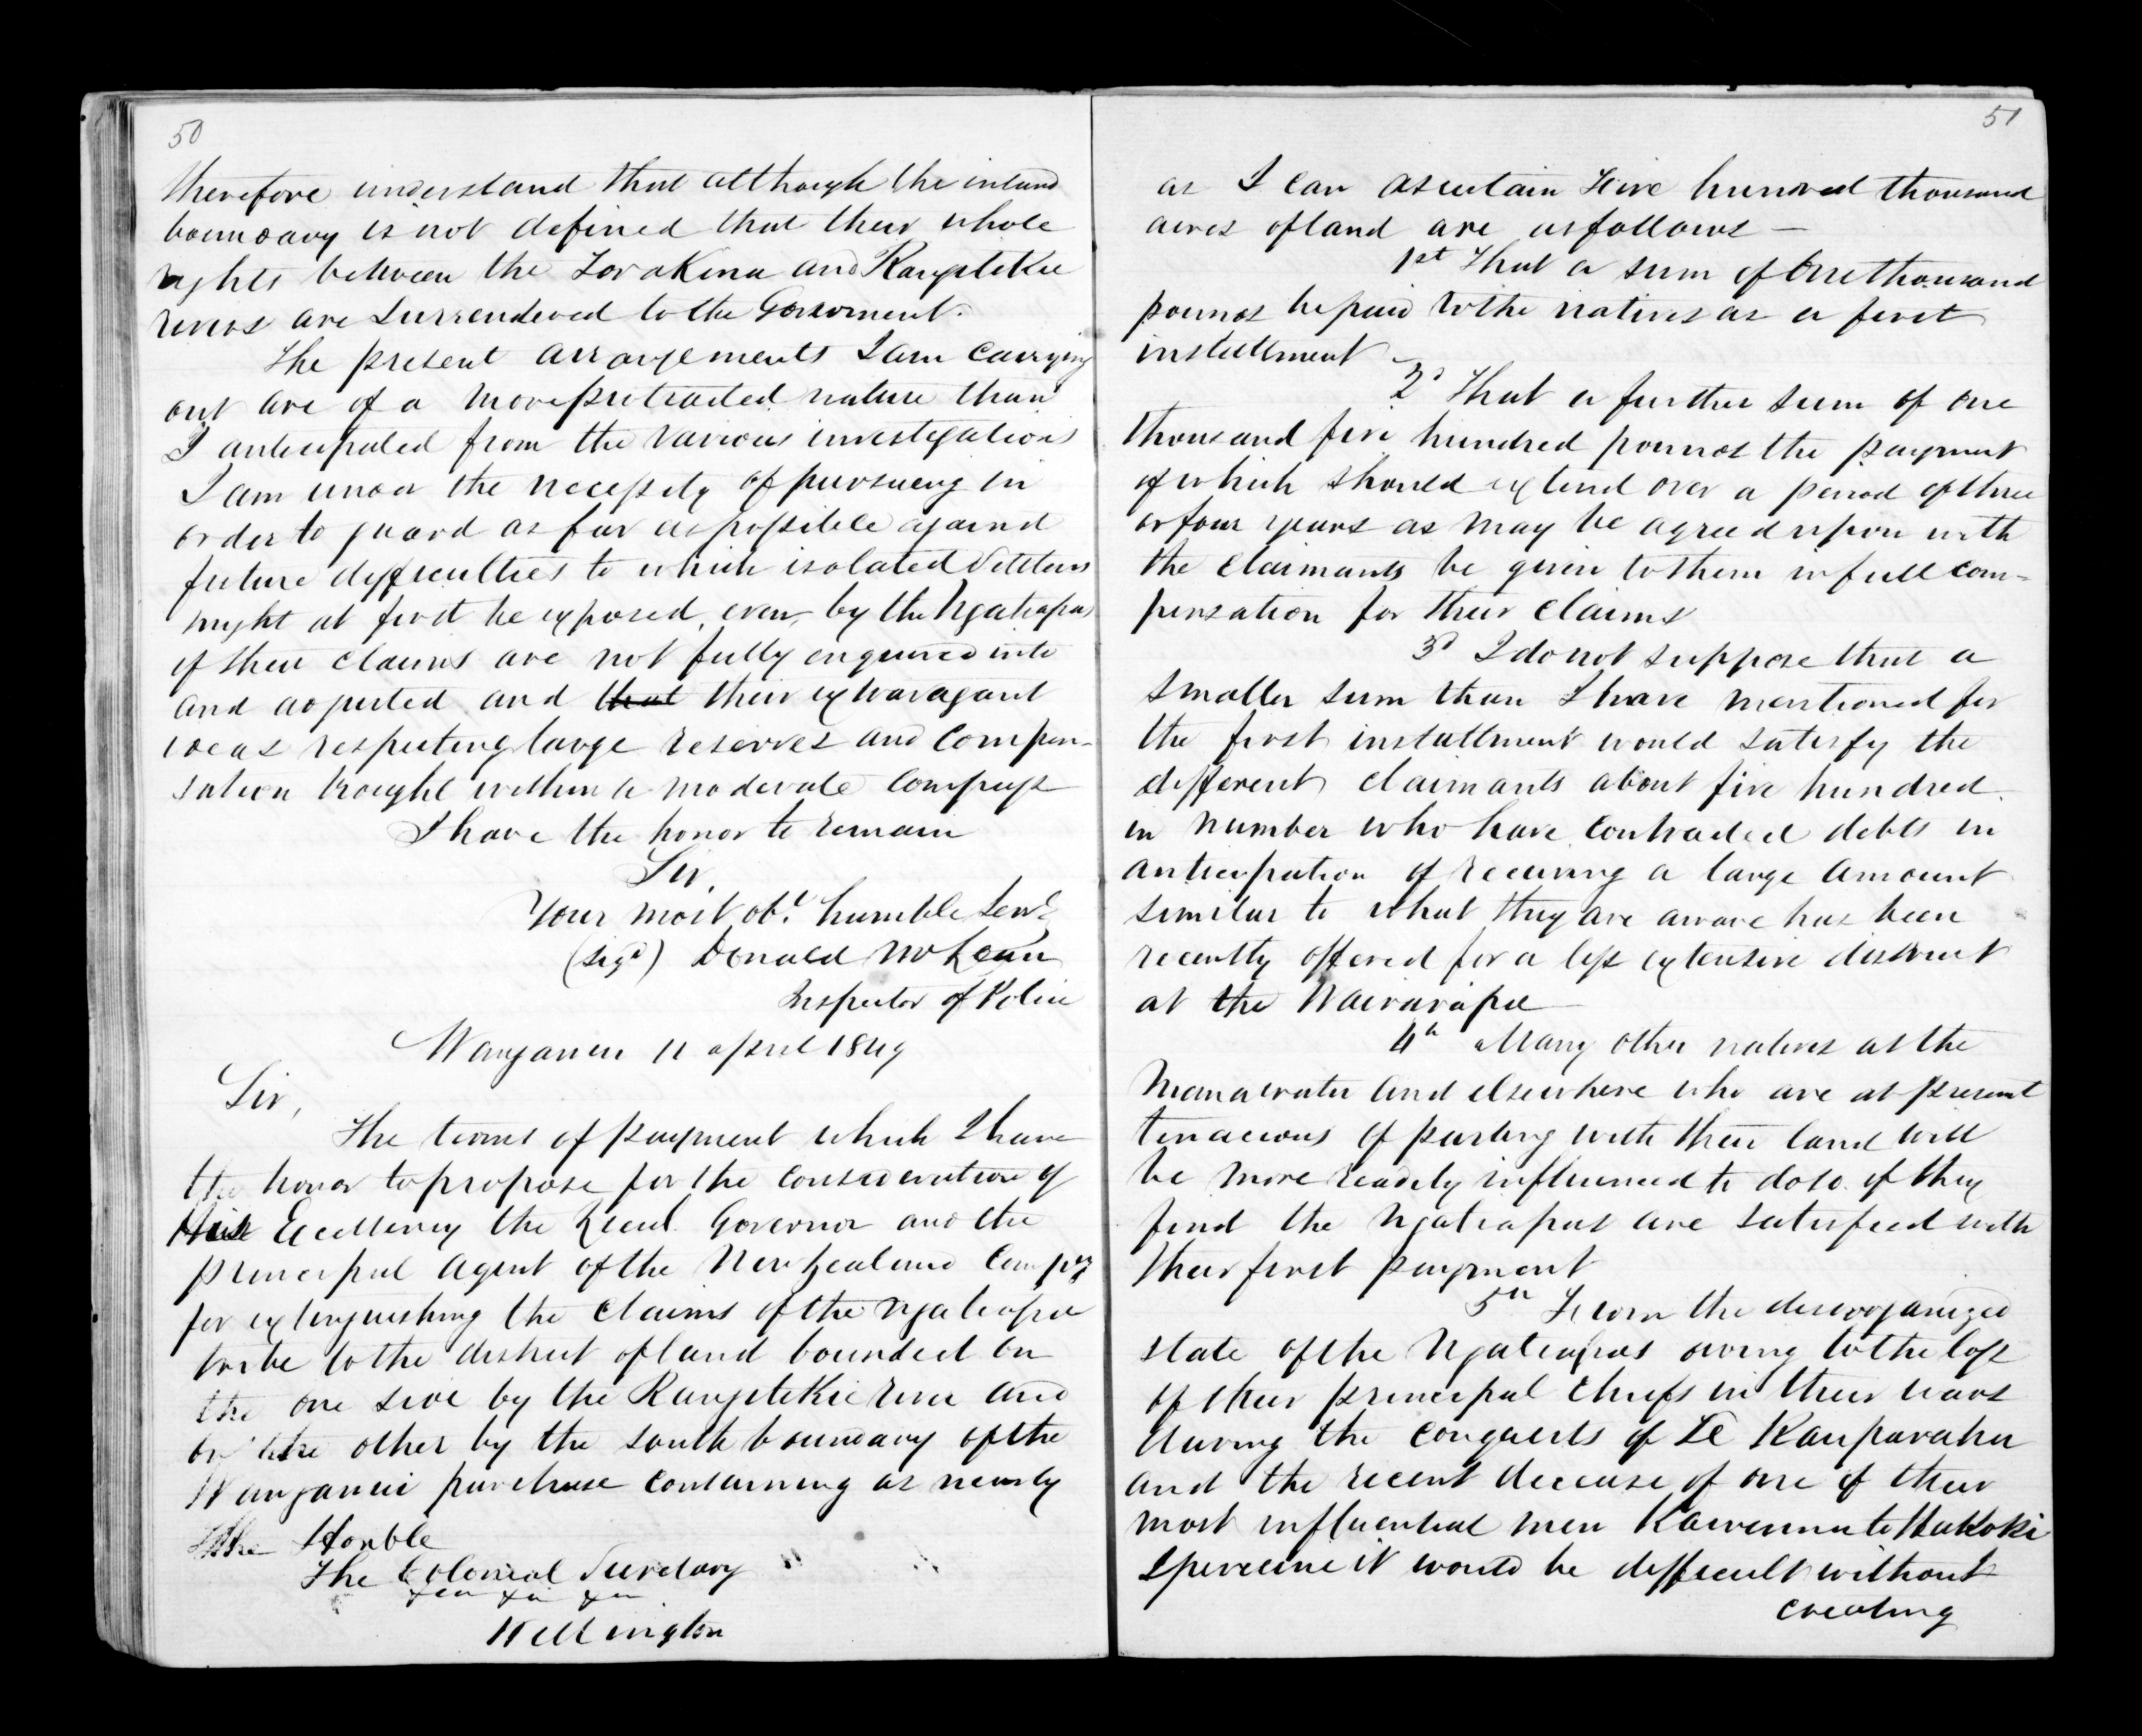 50
therefore understand that although the inland
boundary is not defined that their whole
rights between the Torakina and Rangitikie
rivers are Surrendered to the Government.
The present arrangements I am carrying
out are of a more protracted nature than
I anticipated from the various investigations
I am under the necessity of pursueing in
order to guard as far as possible against
future difficulties to which isolated Settlers
might at first be exposed, even, by the Ngatiapas
if their claims are not fully enquired into
and adjusted and that their extravagant
ideas respecting large reserves and Compen-
sation brought within a moderate Compass
I have the honor to remain
Sir,
Your most obt. humble Servt
(sigd) Donald McLean
Inspector of Police
Wanganui 11 april 1849
Sir,
The terms of payment which I have
the honor to propose for the consideration of
His Excellency the Lieut. Governor and the
principal agent of the New Zealand Compy
for extinguishing the Claims of the Ngatiapa
tribe to the district of land bounded on
the one side by the Rangitikie river and
on the other by the south boundary of the
Wanganui purchase containing as nearly
The Honble
The Colonial Secretary
&c &c &c
Wellington
51
as I can ascertain Five hundred thousand
acres of land are as follows —
1st That a sum of One thousand
pounds be paid to the natives as a first
installment —
2d That a further sum of one
thousand five hundred pounds the payment
of which should extend over a period of three
or four years as may be agreed upon with
the Claimants be given to them in full com-
pensation for their Claims
3d I do not suppose that a
smaller sum than I have mentioned for
the first installment would satisfy the
different Claimants about five hundred
in number who have contracted debts in
anticipation of receiving a large amount
similar to what they are aware has been
recently offered for a less extensive district
at the Wairarapa
4th Many other natives at the
Manawatu and elsewhere who are at present
tenacious of parting with their land will
be more readily influenced to do so if they
find the Ngatiapas are satisfied with
their first payment
5th From the disorganized
state of the Ngatiapas owing to the loss
of their principal Chiefs in their wars
during the Conquests of Te Rauparaha
and the recent decease of one of their
most influential men Kawenna te Hakeke
I perceive it would be difficult without
creating